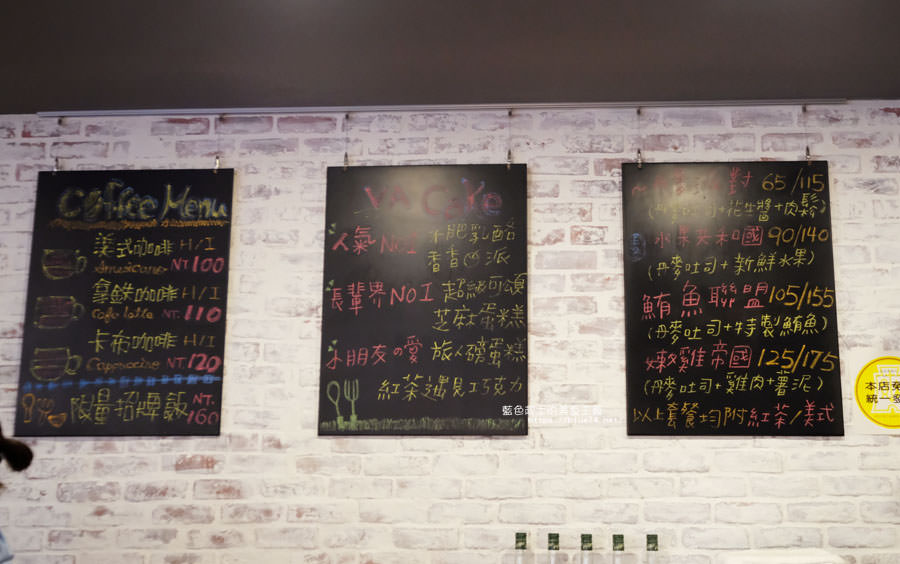 Coffee Menu
美式咖啡 H/I
Americano NT.100
拿鉄咖啡 H/I
Cafe latte NT.110
卡布咖啡 H/I
Cappuccino NT.120
限量招牌飯 NT.160
VA Cake
人氣NO1 不肥乳酪
香香の派
長輩界NO1 超級可頌
芝麻蛋糕
小朋友の愛 旅人磅蛋糕
紅茶遇見巧克力
派對 65/115
(丹麥吐司+花生醬+肉鬆)
水果共和國 90/140
(丹麥吐司+新鮮水果)
鮪魚聯盟 105/155
(丹麥吐司+特製鮪魚)
嫩雞帝國 125/175
(丹麥吐司+雞肉+薯泥)
以上套餐均附紅茶/美式
本店免
統一發